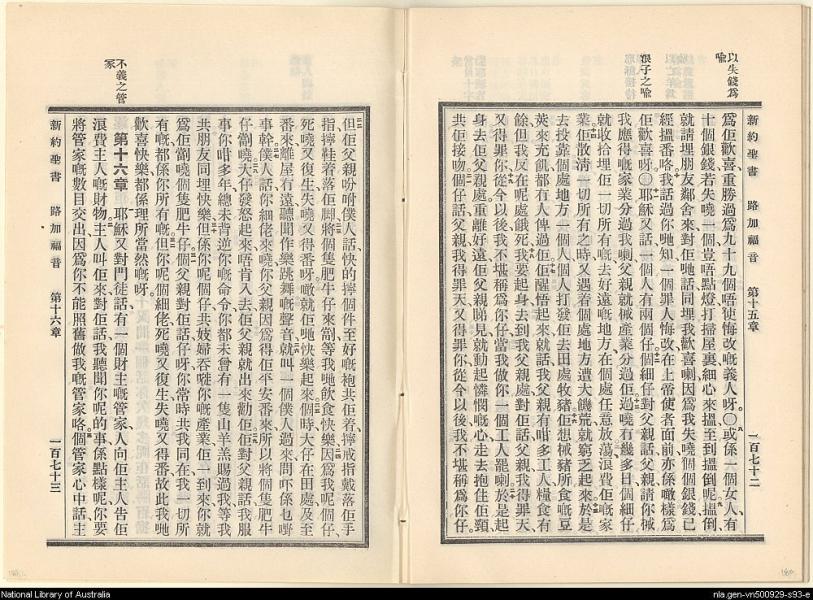 以失錢爲
喩
浪子之喩
新約聖書 路加福音 第十五章 一百七十二
爲佢歡喜、重勝過爲九十九個唔使悔改嘅義人呀。○或係一個女人、有
十個銀錢、若失嘵一個、豈唔點燈打掃屋裏、細心來搵至到搵倒呢、搵倒
就請埋朋友鄰舍來、對佢哋話、同埋我歡喜喇、因爲我失嘵個個銀錢、已
經搵番咯、我話過你哋知、一個罪人悔改、在上帝使者面前、亦係噉樣爲
佢歡喜呀。○耶穌又話、一個人有兩個仔、個細仔對父親話、父親、請你摵
我應得嘅家業分過我喇、父親就摵產業分過佢、過嘵有幾多日、個細仔
就收拾埋佢一切所有嘅、去好遠嘅地方、在個處任意放蕩、浪費佢嘅家
業、佢散清一切所有之時、又遇着個處地方遭大饑荒、就窮乏起來、於是
去投靠個處地方一個人、個人打發佢去田處牧豬、佢想摵豬所食嘅豆
莢來充饑、都冇人俾過佢、佢醒悟起來、就話、我父親有咁多工人、糧食有
餘、但我反在呢處餓死、我要起身去到我父親處、對佢話、父親、我得罪天、
又得罪你、從今以後、我不堪稱爲你仔、當我做你一個工人罷喇、於是起
身去佢父親處、重離好遠、佢父親睇見、就動起憐憫嘅心、走去抱住佢頸、
共佢接吻、個仔話、父親、我得罪天、又得罪你、從今以後、我不堪稱爲你仔。
不義之管
家
但佢父親吩咐僕人話、快的擰個件至好嘅袍共佢着、擰戒指戴落佢手
指、擰鞋着落佢脚、將個隻肥牛仔來劏、等我哋飲食快樂、因爲我呢個仔
死嘵又復生、失嘵又得番呀、噉就佢哋快樂起來、個時大仔在田處、及至
番來離屋冇遠、聽聞作樂跳舞嘅聲音、就叫一個僕人過來、問吓係乜嘢
事幹、僕人話、你細佬來嘵、你父親因爲得佢平安番來、所以將個隻肥牛
仔劏嘵、大仔發怒起來、唔肯入去、佢父親就出來勸佢、佢對父親話、我服
事你咁多年、總未背逆你嘅命令、你都未曾有一隻山羊羔賜過我、等我
共朋友同埋快樂、但係你呢個仔、共妓婦吞囇你嘅產業、佢一到來、你就
爲佢劏嘵個隻肥牛仔、個父親對佢話、仔呀、你常時共我同在、我一切所
有嘅、都係你所有嘅、但你呢個細佬、死嘵又復生、失嘵又得番、故此我哋
歡喜快樂、都係理所當然嘅呀。
第十六章 耶穌又對門徒話、有一個財主嘅管家、人向佢主人告佢
浪費主人嘅財物、主人叫佢來對佢話、我聽聞你呢的事、係點樣呢、你要
將管家嘅數目交出、因爲你不能照舊做我嘅管家咯、個管家心中話、主
新約聖書 路加福音 第十六章 一百七十三
National Library of Australia
nla.gen-vn500929-s93-e